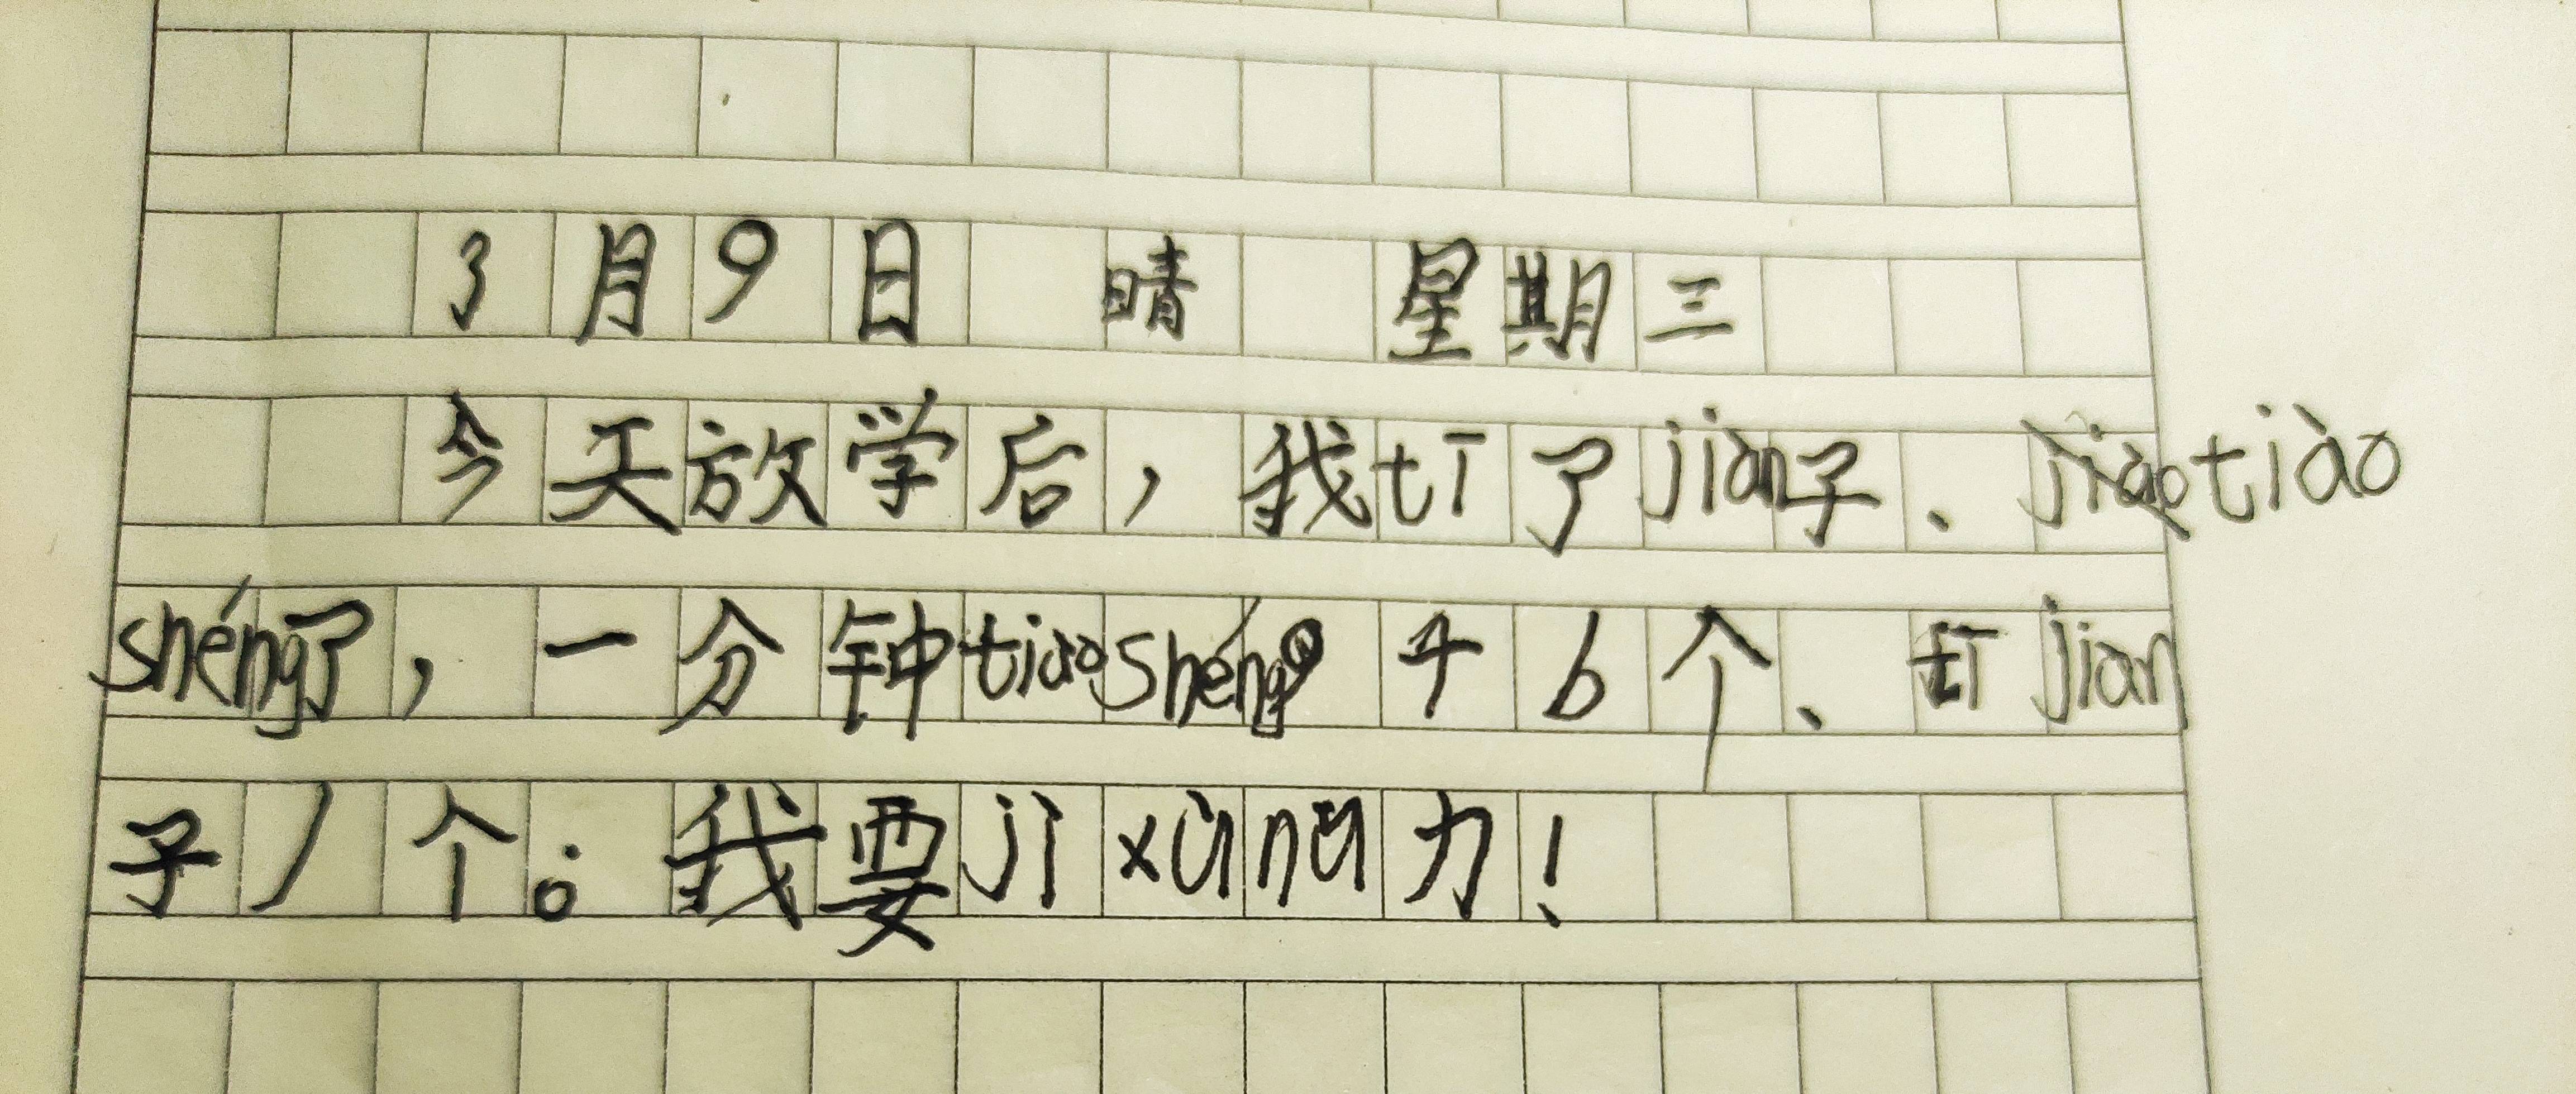 3月9日 晴 星期三
今天放学后，我tī了jiàn子、tiào
shéng了，一分钟tiàoshéng 46个、tī jian
子1个。我要jì xù nǔ力！